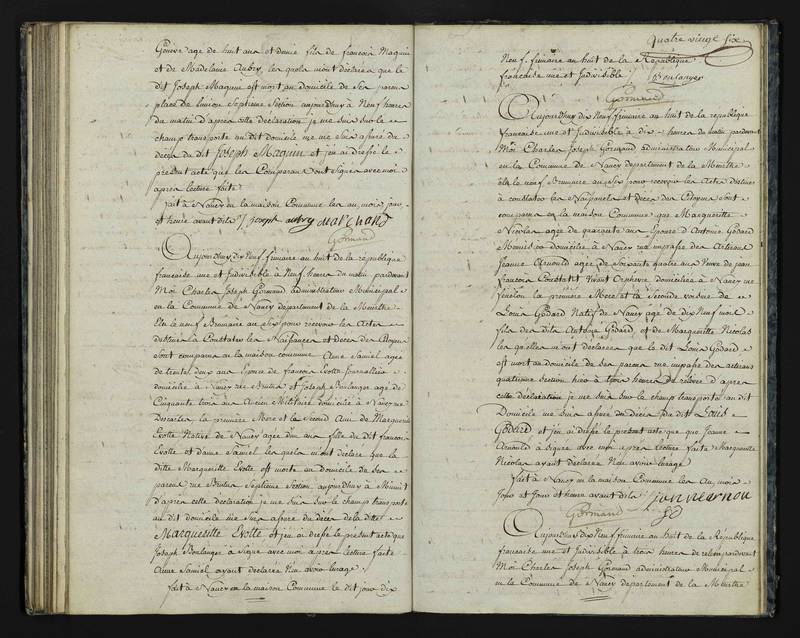 Genève age de huit ans et demie fils de françois Maquin
et de Madelaine Aubry, les quels m'ont déclarée que le
dit Joseph Maquin est mort au domicile de Ses parens
place de Septieme Section aujourdhuy à Neuf heures
du matin d'apres cette declaration je me suis sur le
champ transporté au dit domicile me me suis assuré du
décès du dit Joseph Maquin et j'en ai dressé le
présent acte que les Comparans ont Signés avec moi
apres lecture faite
fait à Nancy en la maison Commune les an, mois, jour
et heure avant dits / joseph aubry marchand
Gormand
Aujourdhuy dix Neuf frimaire an huit de la république
francaise une et Indivisible à Neuf heures du matin pardevant
Moi Charles Joseph Gormand administrateur Municipal
en la Commune de Nancy département de la Meurthe
Elu le neuf Brumaire an six pour recevoir les Actes
destinés à Constater les Naissances et Décès des Citoyens
sont comparus en la maison commune Anne Samiel agée
de trente deux ans Epouse de francois Evotte Journallier
domicilié à Nancy rue Brutus et Joseph Boulanger agé de
Cinquante trois ans Ancien Militaire domicilié à Nancy rue
Descartes la premiere Mere et le Second Ami de Marguerite
Evotte Native de Nancy agée d'un an fille du dit francois
Evotte et dame Samiel les quels m'ont déclaré que la
ditte Marguerite Evotte est morte au domicile de Ses
parens rue Brutus Septieme Section aujourdhuy à Minuit
d'apres cette déclaration je me suis Sur le champ transporté
au dit domicile me suis assuré du décès de la ditte
Marguerite Evotte et j'en ai dressé le présent acte que
Joseph Boulanger a Signé avec moi apres lecture faite
Anne Samiel ayant déclarée Non avoir l'usage
fait à Nancy en la maison Commune le dit jour dix
Quatre vingt six
Neuf frimaire an huit de la République
francaise une et Indivisible / Boulanger
Gormand
Aujourdhuy dix Neuf frimaire an huit de la république
francaise une et Indivisible à dix heures du matin pardevant
Moi Charles Joseph Gormand administrateur Municipal
en la Commune de Nancy département de la Meurthe
élu le neuf Brumaire an six pour recevoir les Actes destinés
à constater les Naissances et Décès des Citoyens Sont
comparus en la maison Commune que Marguerite
Nicolas agée de quarante ans Epouse d'Antoine Godard
domicilié à Nancy rue impasse des Artisans
Jeanne Arnould agée de soixante quatre ans Veuve de jean
francois Constant Vivant Orphevre domiciliée à Nancy rue
fénélon la premiere Mere et la Seconde voisine de
Louis Godard Natif de Nancy agé de dix Neuf mois
fils des dits Antoine Godard et de Marguerite Nicolas
les quelles m'ont déclarées que le dit Louis Godard
est mort au domicile de Ses parens rue impasse des artisans
quatrieme Section hier à heures de relevée d'apres
cette déclaration je me suis Sur le champ transporté au dit
Domicile me Suis assuré du Décès de dit Louis
Godard et j'en ai dressé le présent acte que Jeanne
Arnould a Signé avec moi apres lecture faite Marguerite
Nicolas ayant declarée Non avoir l'usage
fait à Nancy en la maison Commune les An, mois
Jour et heure avant dits / janne arnou
Gormand
Aujourdhuy dix Neuf frimaire an huit de la République
francaise une et Indivisible à trois heures de relevée pardevant
Moi Charles Joseph Gormand administrateur Municipal
en la Commune de Nancy département de la Meurthe